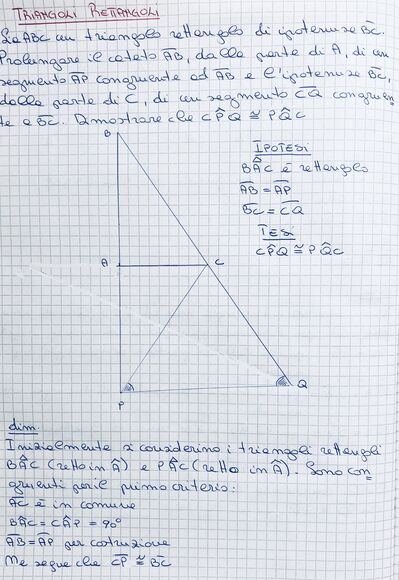 TRIANGOLI RETTANGOLI
Sia ABC un triangolo rettangolo di ipotenusa BC.
Prolungare il cateto AB, dalla parte di A, di un
segmento AP congruente ad AB e l'ipotenusa BC,
dalla parte di C, di un segmento CQ congruen
te a BC. Dimostrare che CP̂Q ≅ PQ̂C
B
IPOTESI
BÂC è rettangolo
AB = AP
BC = CQ
TESI
CP̂Q ≅ PQ̂C
A
C
P
Q
dim.
Inizialmente si considerino i triangoli rettangoli
BÂC (retto in Â) e PÂC (retto in Â). Sono con
gruenti per il primo criterio:
AC è in comune
BÂC = CÂP = 90°
AB = AP per costruzione
Ne segue che CP ≅ BC